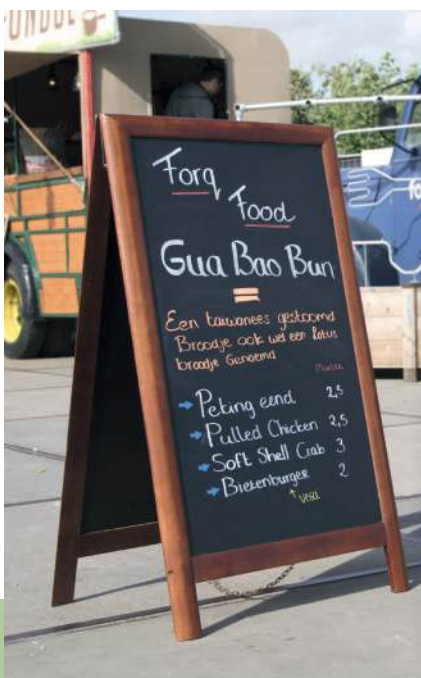 Forq
Food
Gua Bao Bun
Een taiwanees gestoomd
Broodje ook wel een Lotus
broodje Genoemd
Peking eend 2,5
Pulled Chicken 2,5
Soft Shell Crab 3
Biezenburger 2
vega